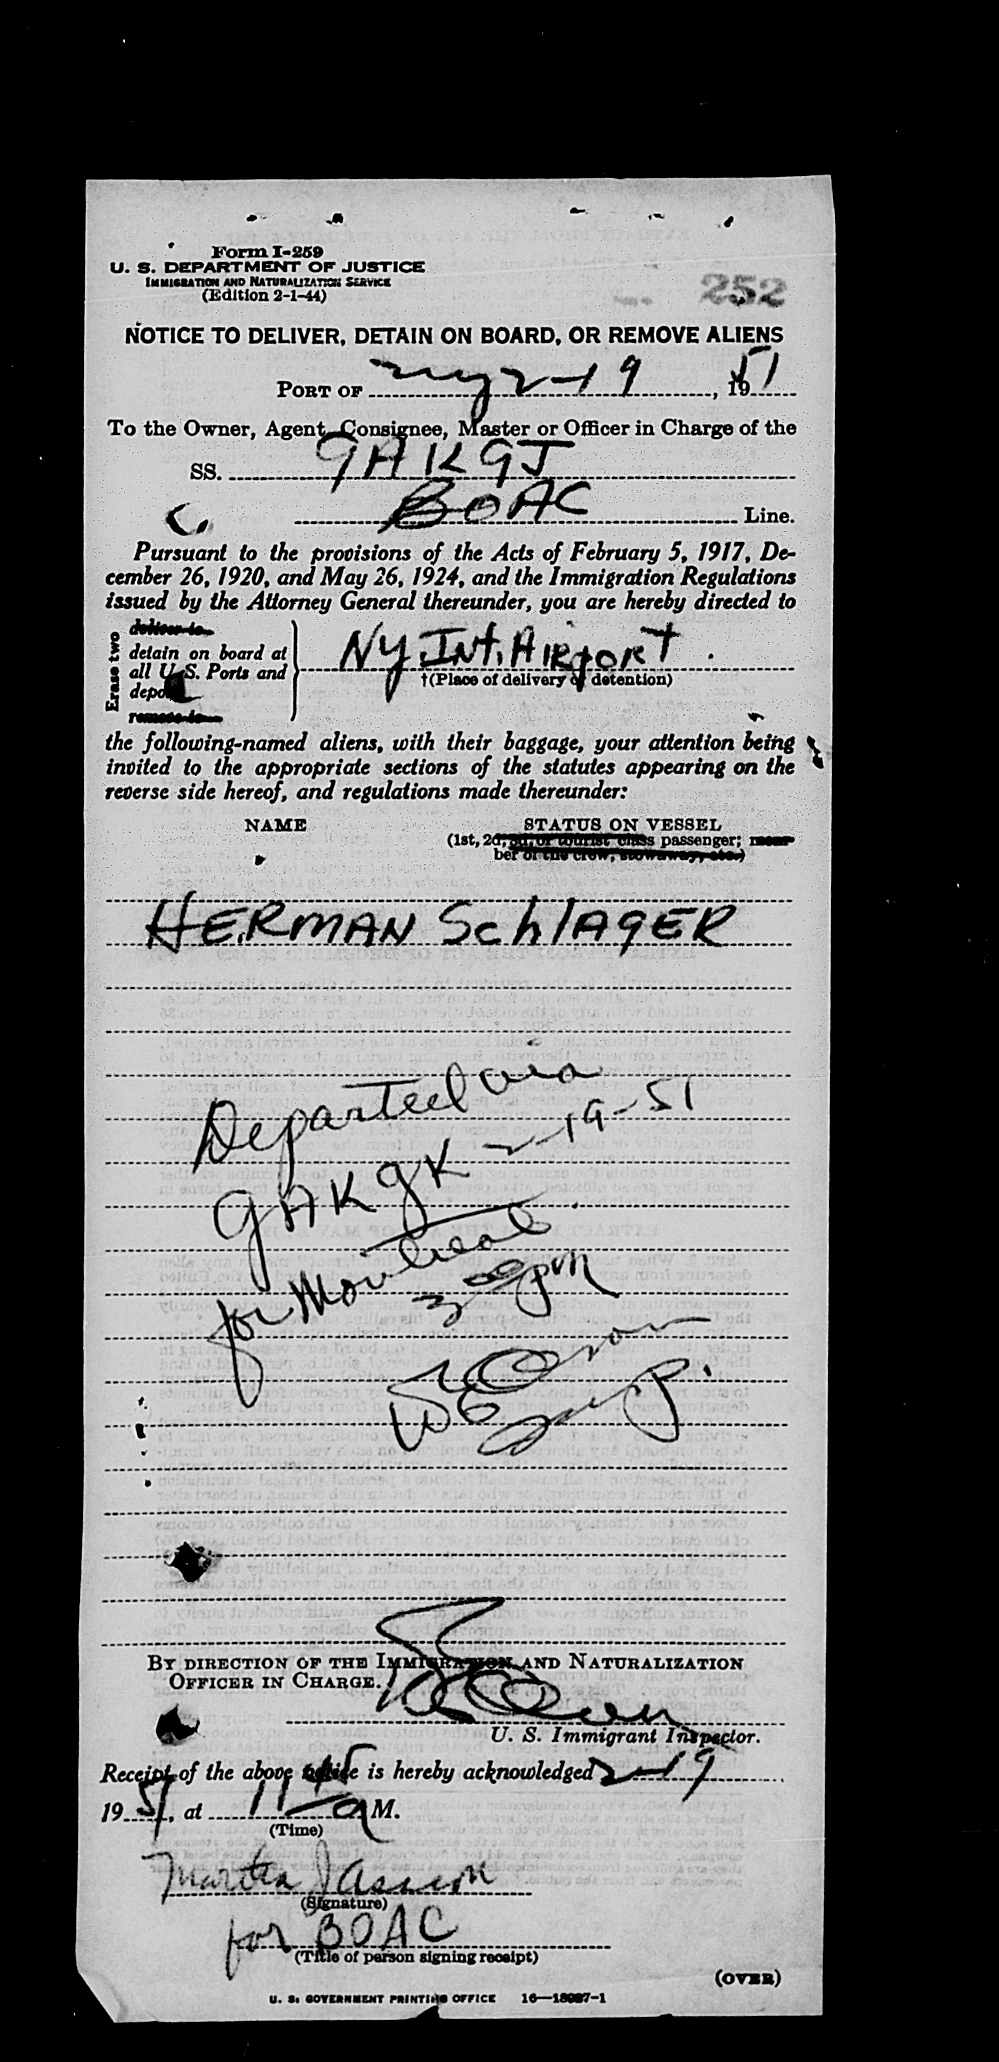 Form I-259
U. S. DEPARTMENT OF JUSTICE
IMMIGRATION AND NATURALIZATION SERVICE
(Edition 2-1-44)
252
NOTICE TO DELIVER, DETAIN ON BOARD, OR REMOVE ALIENS
PORT OF NY 2-19, 1951
To the Owner, Agent, Consignee, Master or Officer in Charge of the
SS. GAKGJ
BOAC Line.
Pursuant to the provisions of the Acts of February 5, 1917, De-
cember 26, 1920, and May 26, 1924, and the Immigration Regulations
issued by the Attorney General thereunder, you are hereby directed to
Erase two
deliver to
detain on board at
all U. S. Ports and
depo
remove to
NY. Int. AIRPORT.
†(Place of delivery or detention)
the following-named aliens, with their baggage, your attention being
invited to the appropriate sections of the statutes appearing on the
reverse side hereof, and regulations made thereunder:
NAME STATUS ON VESSEL
(1st, 2d, 3d, or tourist class passenger; mem-
ber of the crew, stowaway, etc.)
HERMAN SchlAGER
Departed via
GAKGK 2-19-51
for Montreal
3 00 pm
BY DIRECTION OF THE IMMIGRATION AND NATURALIZATION
OFFICER IN CHARGE.
U. S. Immigrant Inspector.
Receipt of the above notice is hereby acknowledged 2-19
1951, at 11 45 A M.
(Time)
Martha
(Signature)
for BOAC
(Title of person signing receipt)
(OVER)
U. S. GOVERNMENT PRINTING OFFICE 16—18987-1